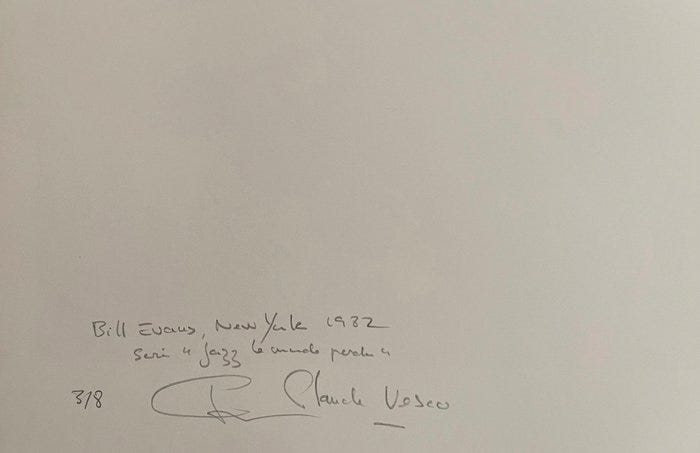 Bill Evans, New York 1982
Serie "Jazz le monde perdu"
3/8 Claude Vesco